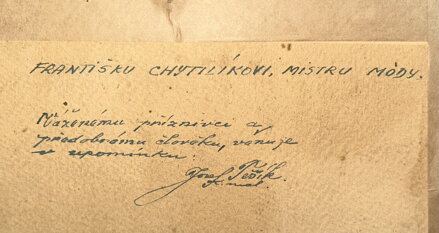 FRANTIŠKU CHYTILÍKOVI, MISTRU MÓDY.
Váženému příznivci a
předobrému člověku, venuje
v upomínku.
Josef
mal.